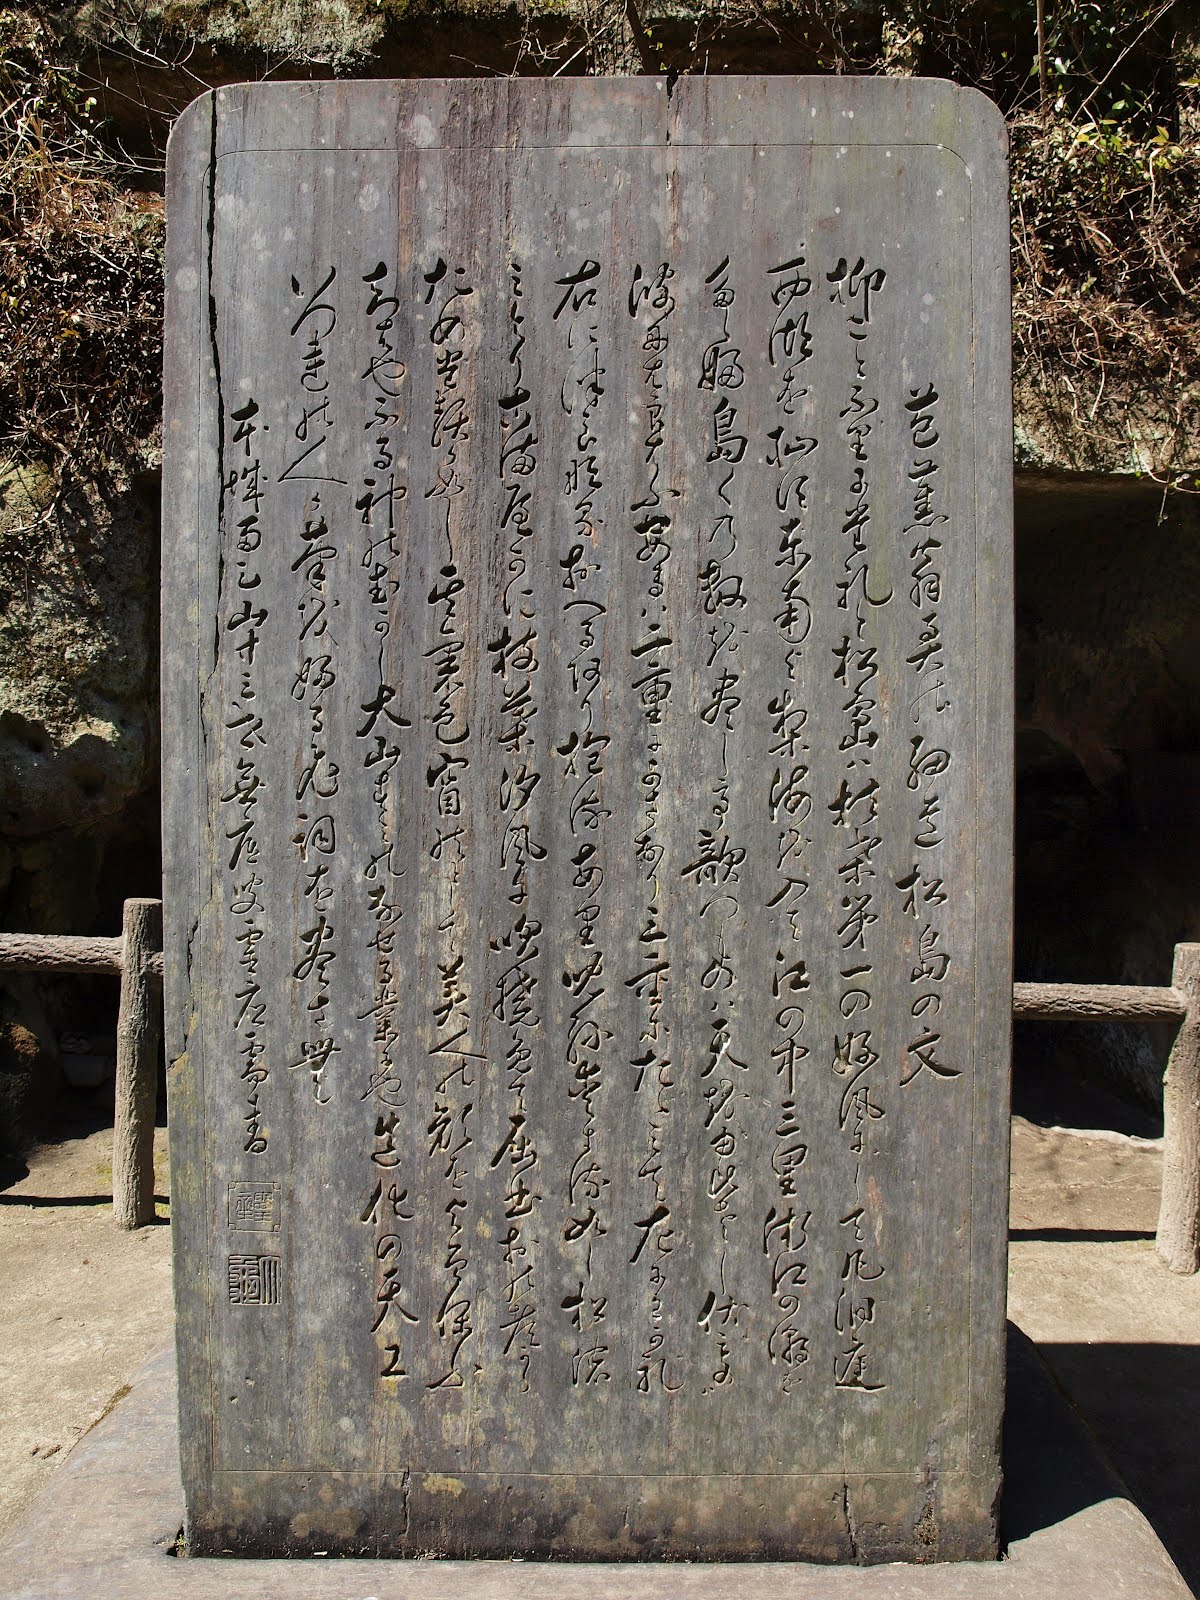 芭蕉翁奥の細道松島の文
抑ことふりにたれと松島は扶桑第一の好風にして凡洞庭
西湖を恥す東南より海を入て江の中三里浙江の潮を
たゝふ島〱の数を尽して歌つものは天を指し伏ものは
波にはらはふあるは二重にかさなり三重にたゝみて左にわかれ
右につらなる負へるあり抱るあり児孫愛する如し松の
みとりこまやかに枝葉汐風に吹撓めて屈曲おのつから
ためたるか如し其景色窅然として美人の顔を粧ふ
ちはやふる神のむかし大山すみのなせる業にや造化の天工
いつれの人か筆をふるひ詞を尽さむ